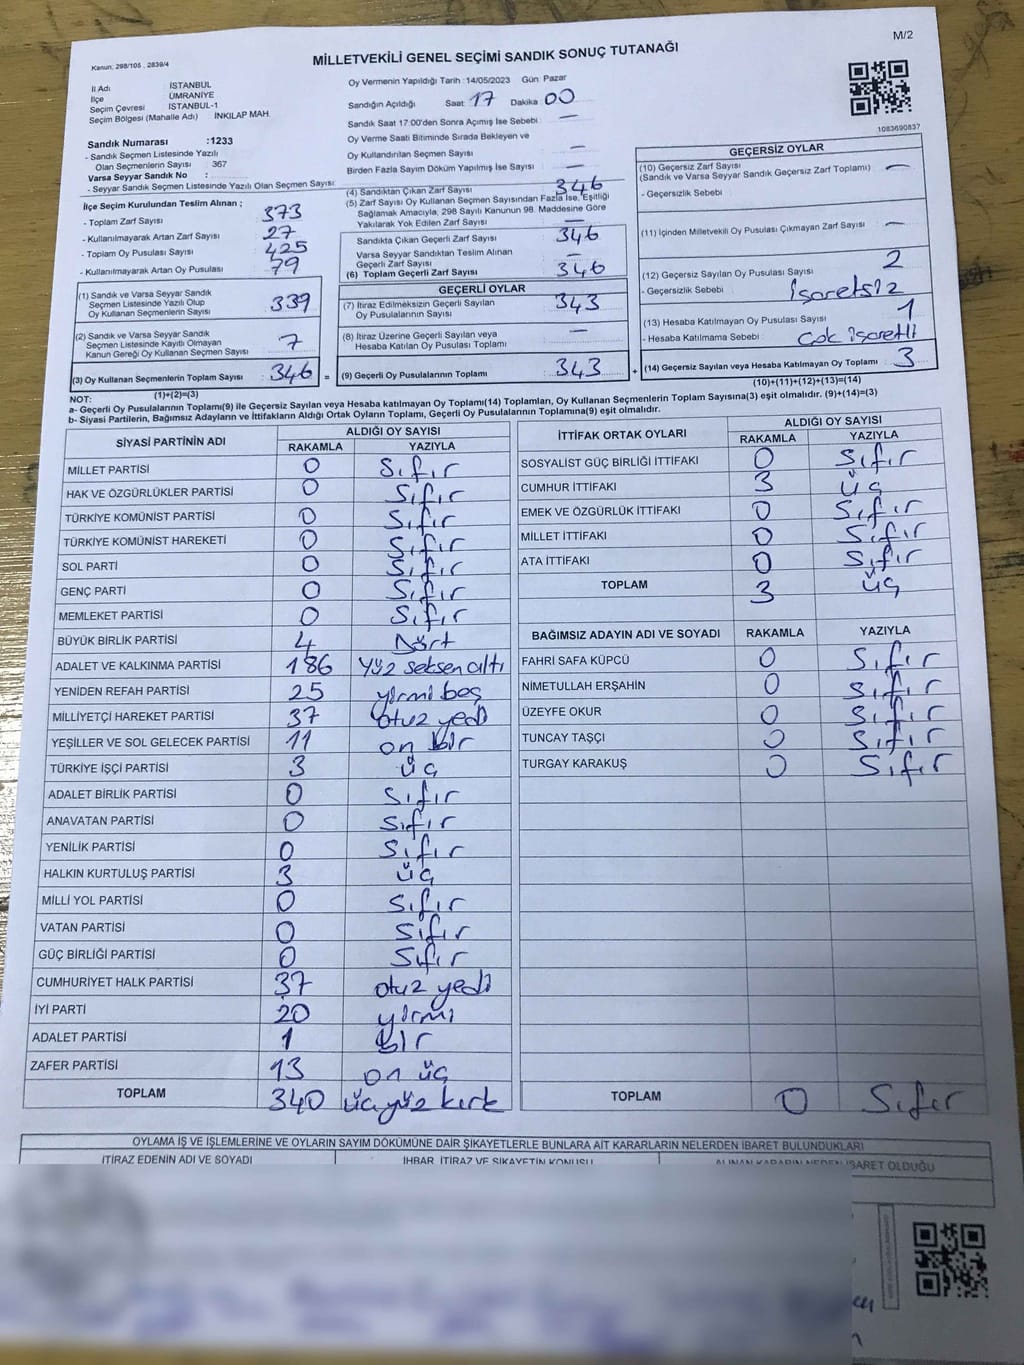 M/2
Kanun: 298/105 , 2839/4
MİLLETVEKİLİ GENEL SEÇİMİ SANDIK SONUÇ TUTANAĞI
İl Adı İSTANBUL
İlçe ÜMRANİYE
Seçim Çevresi İSTANBUL-1
Seçim Bölgesi (Mahalle Adı) İNKILAP MAH.
Sandık Numarası :1233
- Sandık Seçmen Listesinde Yazılı
Olan Seçmenlerin Sayısı 367
Varsa Seyyar Sandık No :
- Seyyar Sandık Seçmen Listesinde Yazılı Olan Seçmen Sayısı:
İlçe Seçim Kurulundan Teslim Alınan ;
- Toplam Zarf Sayısı 373
- Kullanılmayarak Artan Zarf Sayısı 27
- Toplam Oy Pusulası Sayısı 425
- Kullanılmayarak Artan Oy Pusulası 79
(1) Sandık ve Varsa Seyyar Sandık
Seçmen Listesinde Yazılı Olup
Oy Kullanan Seçmenlerin Sayısı 339
(2) Sandık ve Varsa Seyyar Sandık
Seçmen Listesinde Kayıtlı Olmayan
Kanun Gereği Oy Kullanan Seçmen Sayısı 7
(3) Oy Kullanan Seçmenlerin Toplam Sayısı 346 =
(1)+(2)=(3)
Oy Vermenin Yapıldığı Tarih :14/05/2023 Gün: Pazar
Sandığın Açıldığı Saat 17 Dakika 00
Sandık Saat 17:00'den Sonra Açımış İse Sebebi: —
Oy Verme Saati Bitiminde Sırada Bekleyen ve
Oy Kullandırılan Seçmen Sayısı —
Birden Fazla Sayım Döküm Yapılmış İse Sayısı: —
(4) Sandıktan Çıkan Zarf Sayısı 346
(5) Zarf Sayısı Oy Kullanan Seçmen Sayısından Fazla İse, Eşitliği
Sağlamak Amacıyla, 298 Sayılı Kanunun 98. Maddesine Göre
Yakılarak Yok Edilen Zarf Sayısı —
Sandıkta Çıkan Geçerli Zarf Sayısı 346
Varsa Seyyar Sandıktan Teslim Alınan
Geçerli Zarf Sayısı —
(6) Toplam Geçerli Zarf Sayısı 346
GEÇERLİ OYLAR
(7) İtiraz Edilmeksizin Geçerli Sayılan
Oy Pusulalarının Sayısı 343
(8) İtiraz Üzerine Geçerli Sayılan veya
Hesaba Katılan Oy Pusulası Toplamı —
(9) Geçerli Oy Pusulalarının Toplamı 343 +
1083690837
GEÇERSİZ OYLAR
(10) Geçersiz Zarf Sayısı
(Sandık ve Varsa Seyyar Sandık Geçersiz Zarf Toplamı) —
- Geçersizlik Sebebi :
(11) İçinden Milletvekili Oy Pusulası Çıkmayan Zarf Sayısı —
(12) Geçersiz Sayılan Oy Pusulası Sayısı 2
- Geçersizlik Sebebi : İşaretsiz
(13) Hesaba Katılmayan Oy Pusulası Sayısı 1
- Hesaba Katılmama Sebebi : Çok işaretli
(14) Geçersiz Sayılan veya Hesaba Katılmayan Oy Toplamı 3
(10)+(11)+(12)+(13)=(14)
NOT:
a- Geçerli Oy Pusulalarının Toplamı(9) ile Geçersiz Sayılan veya Hesaba katılmayan Oy Toplamı(14) Toplamları, Oy Kullanan Seçmenlerin Toplam Sayısına(3) eşit olmalıdır. (9)+(14)=(3)
b- Siyasi Partilerin, Bağımsız Adayların ve İttifakların Aldığı Ortak Oyların Toplamı, Geçerli Oy Pusulalarının Toplamına(9) eşit olmalıdır.
SİYASİ PARTİNİN ADI ALDIĞI OY SAYISI
RAKAMLA YAZIYLA
MİLLET PARTİSİ 0 Sıfır
HAK VE ÖZGÜRLÜKLER PARTİSİ 0 Sıfır
TÜRKİYE KOMÜNİST PARTİSİ 0 Sıfır
TÜRKİYE KOMÜNİST HAREKETİ 0 Sıfır
SOL PARTİ 0 Sıfır
GENÇ PARTİ 0 Sıfır
MEMLEKET PARTİSİ 0 Sıfır
BÜYÜK BİRLİK PARTİSİ 4 Dört
ADALET VE KALKINMA PARTİSİ 186 Yüz seksen altı
YENİDEN REFAH PARTİSİ 25 yirmi beş
MİLLİYETÇİ HAREKET PARTİSİ 37 otuz yedi
YEŞİLLER VE SOL GELECEK PARTİSİ 11 on bir
TÜRKİYE İŞÇİ PARTİSİ 3 üç
ADALET BİRLİK PARTİSİ 0 Sıfır
ANAVATAN PARTİSİ 0 Sıfır
YENİLİK PARTİSİ 0 Sıfır
HALKIN KURTULUŞ PARTİSİ 3 üç
MİLLİ YOL PARTİSİ 0 Sıfır
VATAN PARTİSİ 0 Sıfır
GÜÇ BİRLİĞİ PARTİSİ 0 Sıfır
CUMHURİYET HALK PARTİSİ 37 otuz yedi
İYİ PARTİ 20 yirmi
ADALET PARTİSİ 1 bir
ZAFER PARTİSİ 13 on üç
TOPLAM 340 üç yüz kırk
İTTİFAK ORTAK OYLARI ALDIĞI OY SAYISI
RAKAMLA YAZIYLA
SOSYALİST GÜÇ BİRLİĞİ İTTİFAKI 0 Sıfır
CUMHUR İTTİFAKI 3 üç
EMEK VE ÖZGÜRLÜK İTTİFAKI 0 Sıfır
MİLLET İTTİFAKI 0 Sıfır
ATA İTTİFAKI 0 Sıfır
TOPLAM 3 üç
BAĞIMSIZ ADAYIN ADI VE SOYADI RAKAMLA YAZIYLA
FAHRİ SAFA KÜPCÜ 0 Sıfır
NİMETULLAH ERŞAHİN 0 Sıfır
ÜZEYFE OKUR 0 Sıfır
TUNCAY TAŞÇI 0 Sıfır
TURGAY KARAKUŞ 0 Sıfır
TOPLAM 0 Sıfır
OYLAMA İŞ VE İŞLEMLERİNE VE OYLARIN SAYIM DÖKÜMÜNE DAİR ŞİKAYETLERLE BUNLARA AİT KARARLARIN NELERDEN İBARET BULUNDUKLARI
İTİRAZ EDENİN ADI VE SOYADI İHBAR, İTİRAZ VE ŞİKAYETİN KONUSU ALINAN KARARIN NEDEN İBARET OLDUĞU